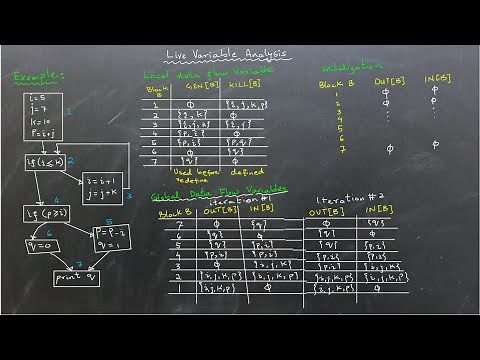 Live Variable Analysis
Example:
i=5
j=7
k=10
p=i+j
1
if(i≤k)
2
i=i+1
j=j+k
3
if (p≥i)
4
5
p=p-2
q=1
6
q=0
7
print q
Local data flow Variable
Block B GEN[B] KILL[B]
1 φ {i,j,k,p}
2 {i,k} φ
3 {i,j,k} {i,j}
4 {p,i} φ
5 {p,i} {p,q}
6 φ {q}
7 {q} φ
Used before redefine defined
Initialization
Block B OUT[B] IN[B]
1 φ φ
2 φ φ
3
4
5
6
7 φ φ
Global Data Flow Variables
iteration #1 Iteration #2
Block B OUT[B] IN[B] OUT[B] IN[B]
7 φ {q} φ {q}
6 {q} φ {q} φ
5 {q} {p,i} {q} {p,i}
4 {p,i} {p,i} {p,i} {p,i}
3 φ {i,j,k}
2 {i,j,k,p} {i,j,k,p} {i,j,k,p} {i,j,k,p}
1 {i,j,k,p} φ {i,j,k,p} φ